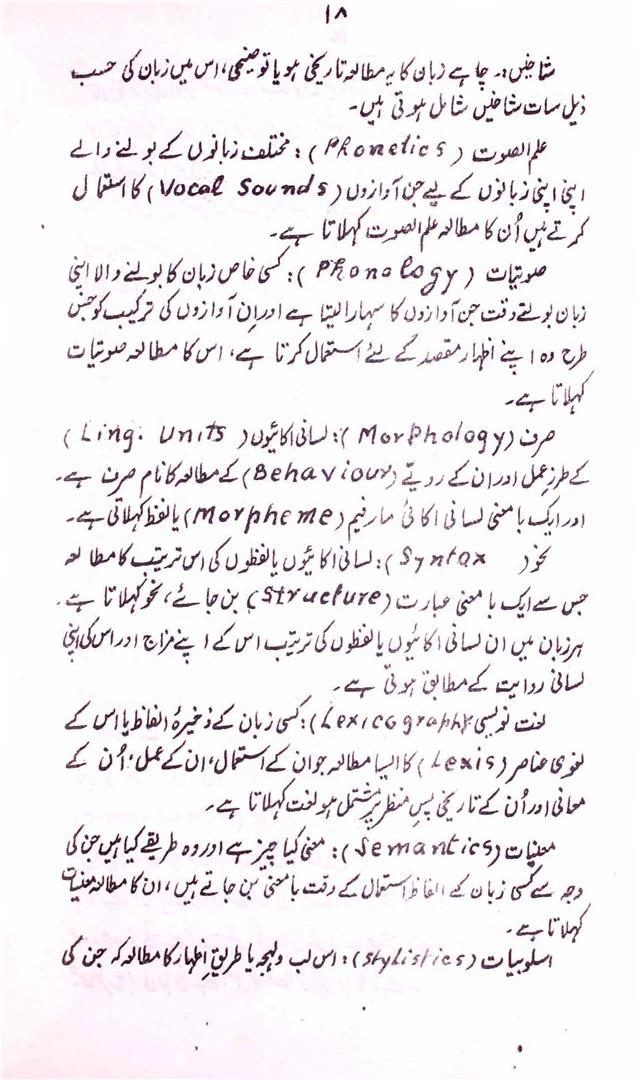 ۱۸
شاخیں:۔ چاہے زبان کا یہ مطالعہ تاریخی ہو یا توضیحی، اس میں زبان کی حسب
ذیل سات شاخیں شامل ہوتی ہیں۔
علم الصوت (Phonetics): مختلف زبانوں کے بولنے والے
اپنی اپنی زبانوں کے لیے جن آوازوں (Vocal Sounds) کا استعمال
کرتے ہیں اُن کا مطالعہ علم الصوت کہلاتا ہے۔
صوتیات (Phonology): کسی خاص زبان کا بولنے والا اپنی
زبان بولتے وقت جن آوازوں کا سہارا لیتا ہے اور اِن آوازوں کی ترکیب کو جس
طرح وہ اپنے اظہار مقصد کے لئے استعمال کرتا ہے، اس کا مطالعہ صوتیات
کہلاتا ہے۔
صرف (Morphology): لسانی اکائیوں (Ling. Units)
کے طرزِ عمل اور ان کے رویّے (Behaviour) کے مطالعہ کا نام صرف ہے۔
اور ایک با معنی لسانی اکائی مارفیم (Morpheme) یا لفظ کہلاتی ہے۔
نحو (Syntax): لسانی اکائیوں یا لفظوں کی اس ترتیب کا مطالعہ
جس سے ایک با معنی عبارت (Structure) بن جائے، نحو کہلاتا ہے۔
ہر زبان میں ان لسانی اکائیوں یا لفظوں کی ترتیب اس کے اپنے مزاج اور اس کی اپنی
لسانی روایت کے مطابق ہوتی ہے۔
لغت نویسی (Lexicography): کسی زبان کے ذخیرۂ الفاظ یا اس کے
لغوی عناصر (Lexis) کا ایسا مطالعہ جو ان کے استعمال، ان کے عمل، اُن کے
معانی اور اُن کے تاریخی پسِ منظر پر مشتمل ہو لغت کہلاتا ہے۔
معنیات (Semantics): معنی کیا چیز ہے اور وہ طریقے کیا ہیں جن کی
وجہ سے کسی زبان کے الفاظ استعمال کے وقت با معنی بن جاتے ہیں، ان کا مطالعہ معنیات
کہلاتا ہے۔
اسلوبیات (Stylistics): اس لب ولہجہ یا طریقِ اظہار کا مطالعہ کہ جن کی